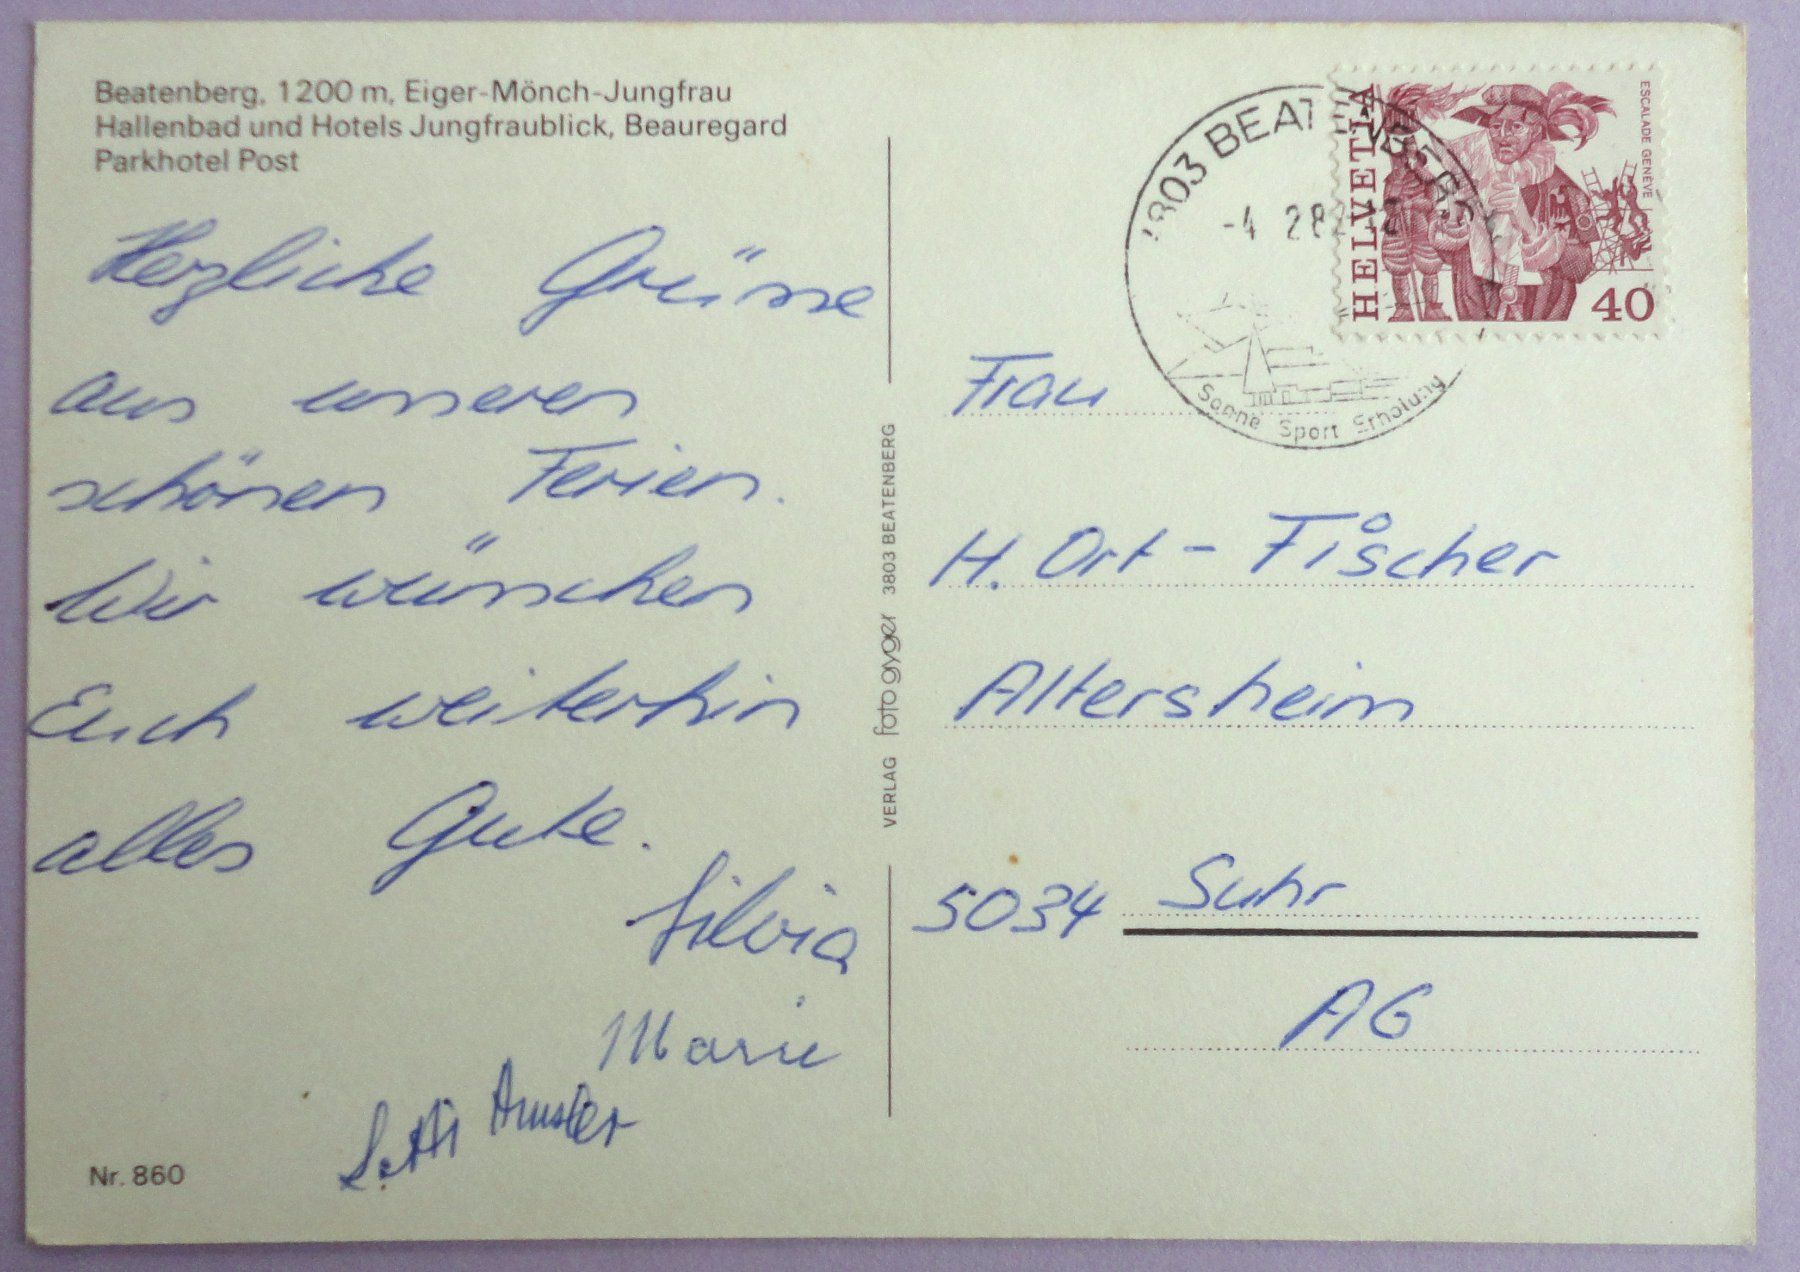 Beatenberg, 1200 m, Eiger-Mönch-Jungfrau
Hallenbad und Hotels Jungfraublick, Beauregard
Parkhotel Post
Herzliche Grüsse
aus unseren
schönen Ferien.
Wir wünschen
Euch weiterhin
alles Gute.
Silvia
Marie
Amsler
Nr. 860
VERLAG foto gyger 3803 BEATENBERG
3803 BEATENBERG
-4 2 82-12
Sonne Sport Erholung
HELVETIA
ESCALADE GENÈVE
40
Frau
H. Ort-Fischer
Altersheim
5034 Suhr
AG